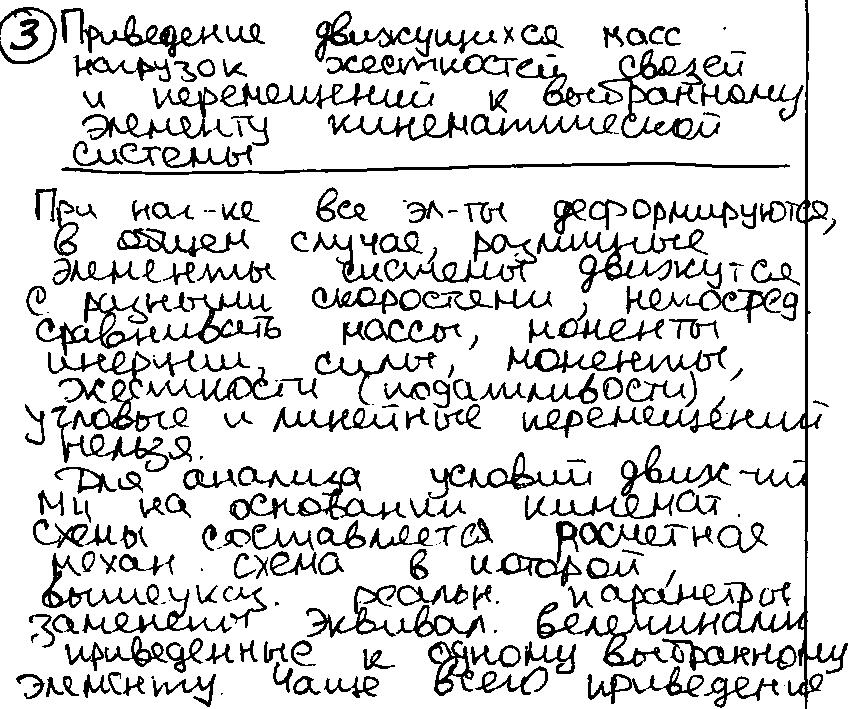 3 Приведение движущихся масс
нагрузок жесткостей связей
и перемещений к выбранному
элементу кинематической
системы
При наг-ке все эл-ты деформируются,
в общем случае, различные
элементы системы движутся
с разными скоростями, непосред
сравнивать массы, моменты
инерции, силы, моменты,
жесткости (податливости),
угловые и линейные перемещений
нельзя.
Для анализа условий движ-ий
МЦ на основании кинемат.
схемы составляется расчетная
механ. схема в которой,
вышеуказ. реальн. параметры
заменены эквивал. величинами
приведенные к одному выбранному
элементу. Чаще всего приведение